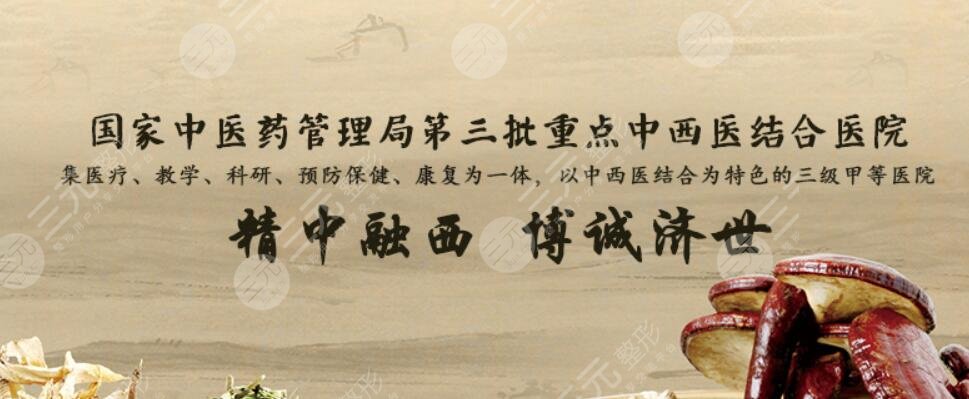 国家中医药管理局第三批重点中西医结合医院
集医疗、教学、科研、预防保健、康复为一体，以中西医结合为特色的三级甲等医院
精中融西 博诚济世
三元整形